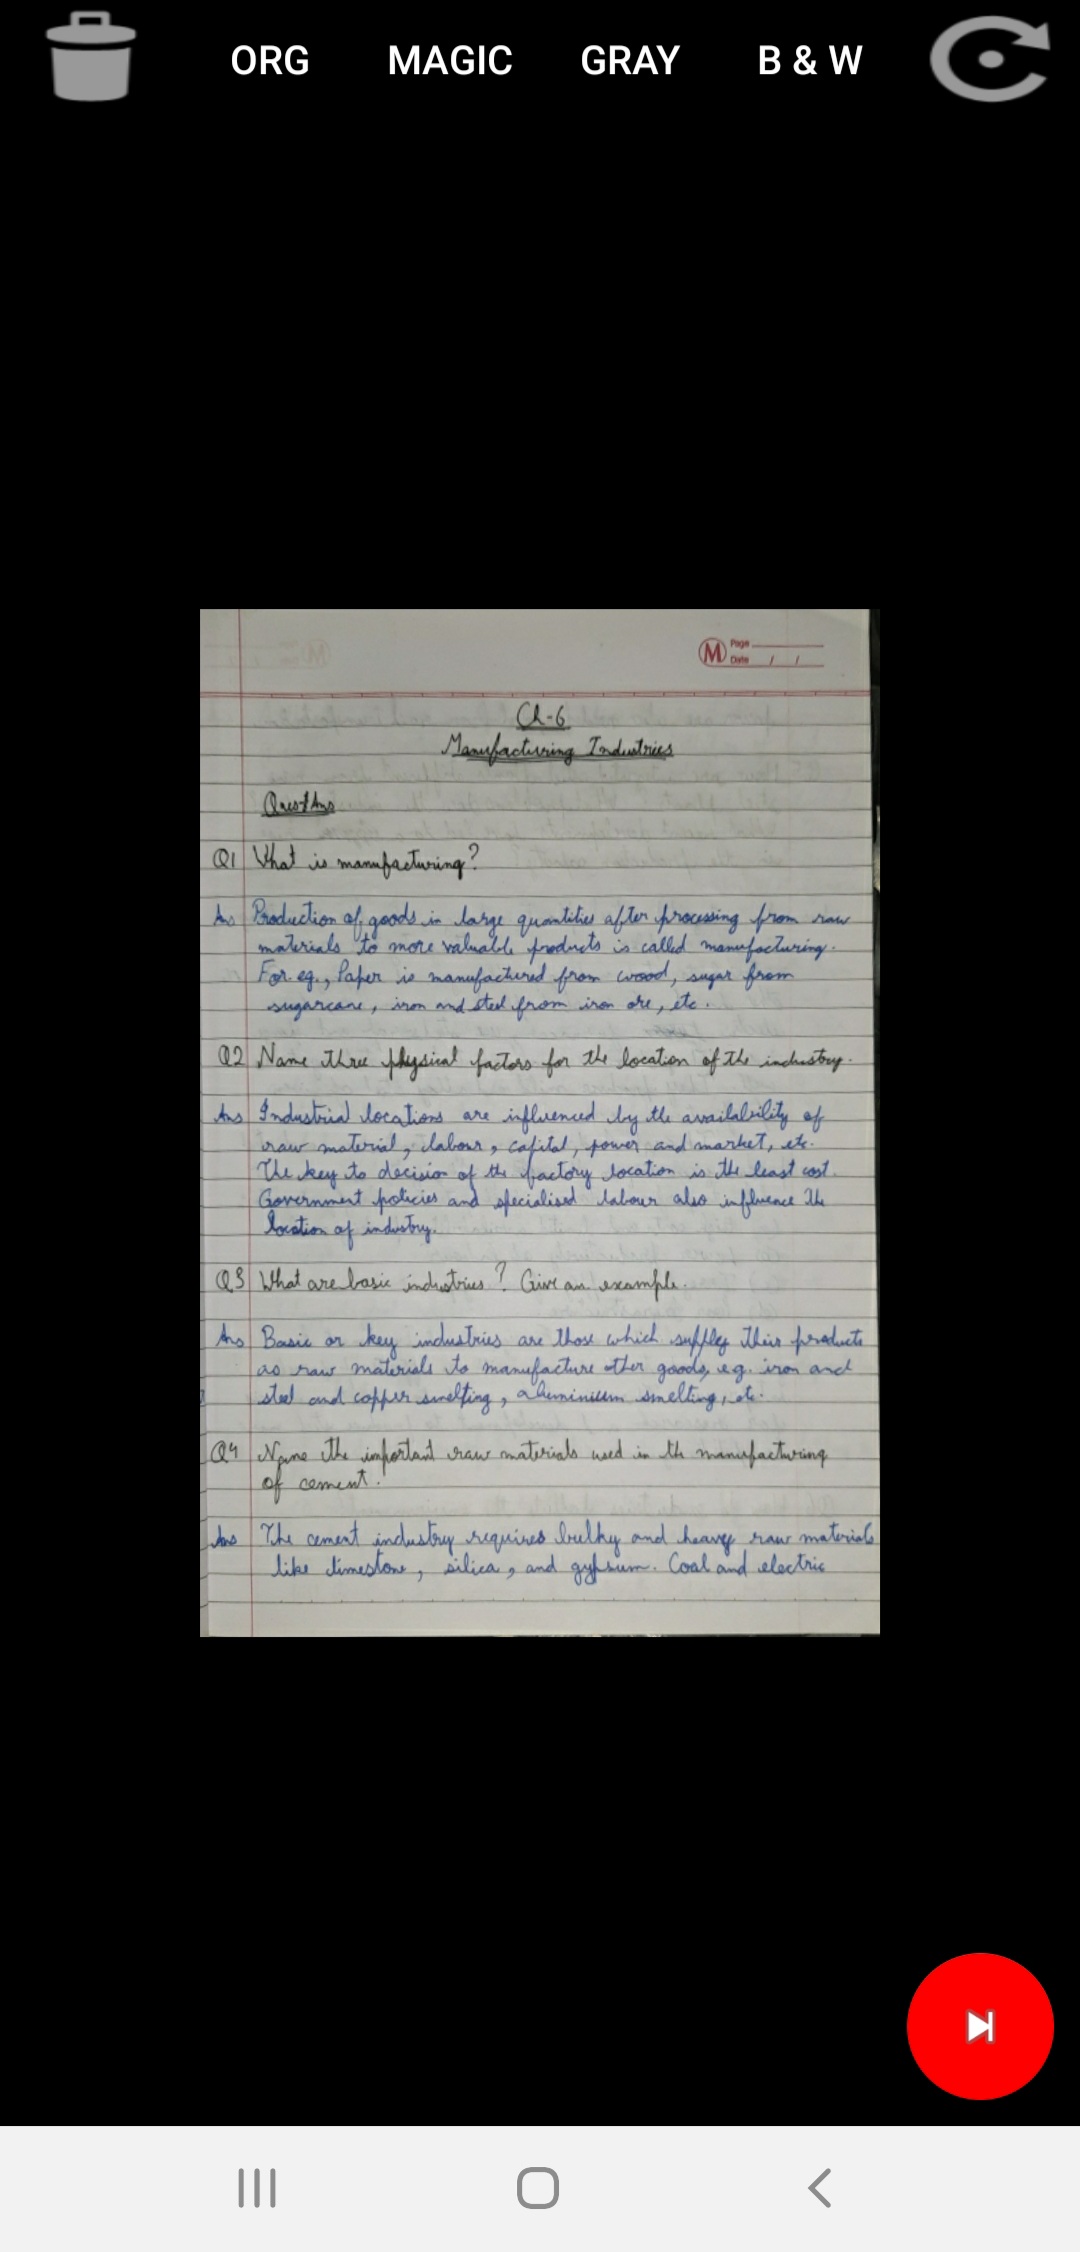 ORG MAGIC GRAY B & W
M Page
Date / /
Ch-6
Manufacturing Industries
Ques/Ans
Q1 What is manufacturing?
Ans Production of goods in large quantities after processing from raw
materials to more valuable products is called manufacturing.
For eg., Paper is manufactured from wood, sugar from
sugarcane, iron and steel from iron ore, etc.
Q2 Name three physical factors for the location of the industry.
Ans Industrial locations are influenced by the availability of
raw material, labour, capital, power and market, etc.
The key to decision of the factory location is the least cost.
Government policies and specialised labour also influence the
location of industry.
Q3 What are basic industries? Give an example.
Ans Basic or key industries are those which supply their products
as raw materials to manufacture other goods, e.g. iron and
steel and copper smelting, aluminium smelting, etc.
Q4 Name the important raw materials used in the manufacturing
of cement.
Ans The cement industry requires bulky and heavy raw materials
like limestone, silica, and gypsum. Coal and electric